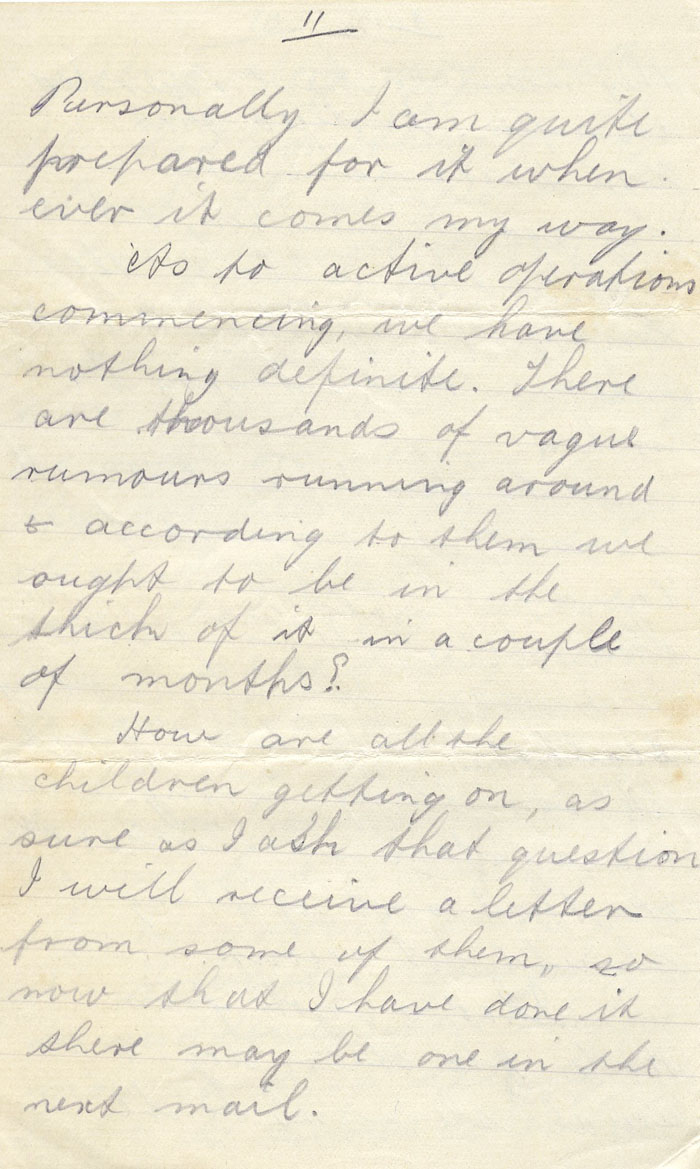 11
Personally I am quite
prepared for it when
ever it comes my way.
As to active operations
commencing, we have
nothing definite. There
are thousands of vague
rumours running around
& according to them we
ought to be in the
thick of it in a couple
of months?
How are all the
children getting on, as
sure as I ask that question
I will receive a letter
from some of them, so
now that I have done it
there may be one in the
next mail.